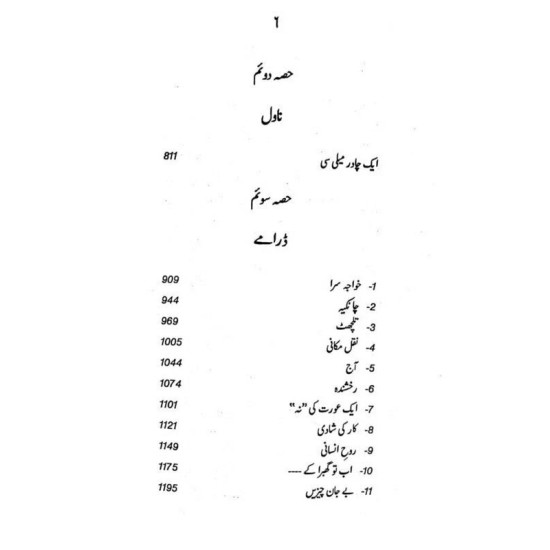 ٦
حصہ دوئم
ناول
ایک چادر میلی سی 811
حصہ سوئم
ڈرامے
1- خواجہ سرا 909
2- چانکیہ 944
3- تلچھٹ 969
4- نقل مکانی 1005
5- آج 1044
6- رخشندہ 1074
7- ایک عورت کی "نہ" 1101
8- کار کی شادی 1121
9- روحِ انسانی 1149
10- اب تو گھبرا کے ---- 1175
11- بے جان چیزیں 1195